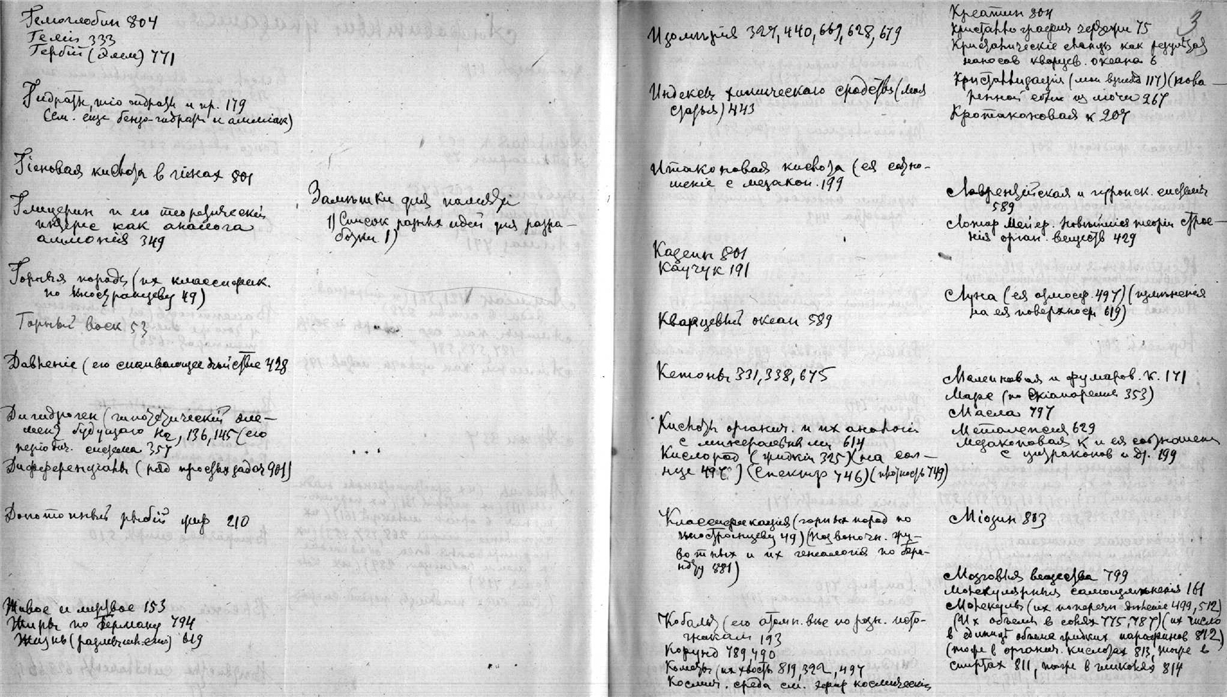 Гемоглобин 804
Гелій 333
Гербій (элем) 771
Гидраты, тіо гидраты и пр. 179
См. еще бензо-гидраты и алкоголь)
Гіеновая кислота в гіенах 801
Глицерин и его теоретическій
интерес как аналога
аммонія 349
Горныя породы (их классифик.
по Иностранцеву 49)
Горный воск 53
Давленіе (его сжижающее дѣйствіе 428
Дигидроген (гипотетическій эле-
мент будущаго 136, 145 (его
періодич. система 357
Дифференціалы (ряд простых задач 901)
Допотопный рыбій жир 210
Живое и мертвое 153
Жиры по Герману 794
Жизнь 619
Замѣтки для памяти
1) Список разных идей для разра-
ботки 1)
Изомерія 327, 440, 669, 628, 679
Индексы химическаго сродства (моя
статья) 443
Итаконовая кислота (ея соотно-
шеніе с мезакон. 199
Казеин 801
Каучук 191
Кварцевый океан 589
Кетоны 331, 338, 675
Кислоты органич. и их аналогія
с минеральными 614
Кислород (жидкій 325) (на сол-
нце 497) (спектр 746) (плотность 749)
Классификація (горных пород по
Иностранцеву 49) (Позвоночн. жи-
вотных и их генеалогія по
881)
Кобальт (его атомн. вѣс по разн. авто-
193
Корунд 489, 490
Кометы (их хвосты 819, 392, 497
Космич. среда см. эфир космическій
3
Креатин 804
Кристаллографія 75
Кристаллическіе сланцы как
наносов кварцев. океана 6
Кристаллизація (мои 117) (пова-
ренной соли из мочи 267
Кротаконовая к 207
Лаврентійская и гуронск. системы
589
Лотар Мейер. Новѣйшія теоріи строе-
нія орган. веществ 429
Луна (ея атмосф. 497) (измѣненія
на ея поверхност. 619)
Малеиновая и фумаров. к. 171
Марс (по Скіапарелли 353)
Масла 797
Металепсія 629
Мезаконовая к и ея соотношен.
с цитраконов и др. 199
Міозин 803
Мозговыя вещества 799
Молекулярныя 161
Молекулы (их поперечн. 499, 512)
(Их объем в солях 775, 787) (их число
в единицѣ объема жидких парафинов 812)
(тоже в органич. кислотах 813, тоже в
спиртах 811, тоже в гликолях 814